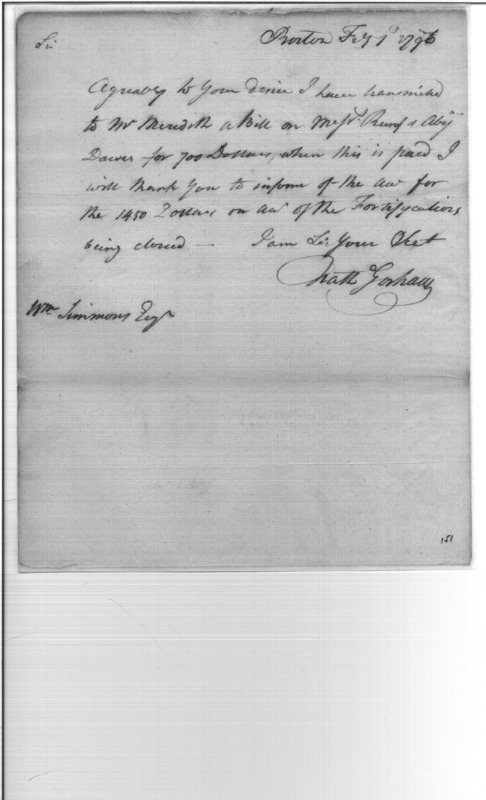 Boston Feby 1st 1796
Sir
Agreably to Your desire I have transmitted
to Mr Meredith a Bill on Messrs & Abij
Dawes for 700 Dollars, when this is paid I
will thank You to inform of the acct for
the 1450 Dollars on acct of the Fortifycations
being closed — I am Sir Your Obt
Nath Gorham
Wm Simmons Esqr
151